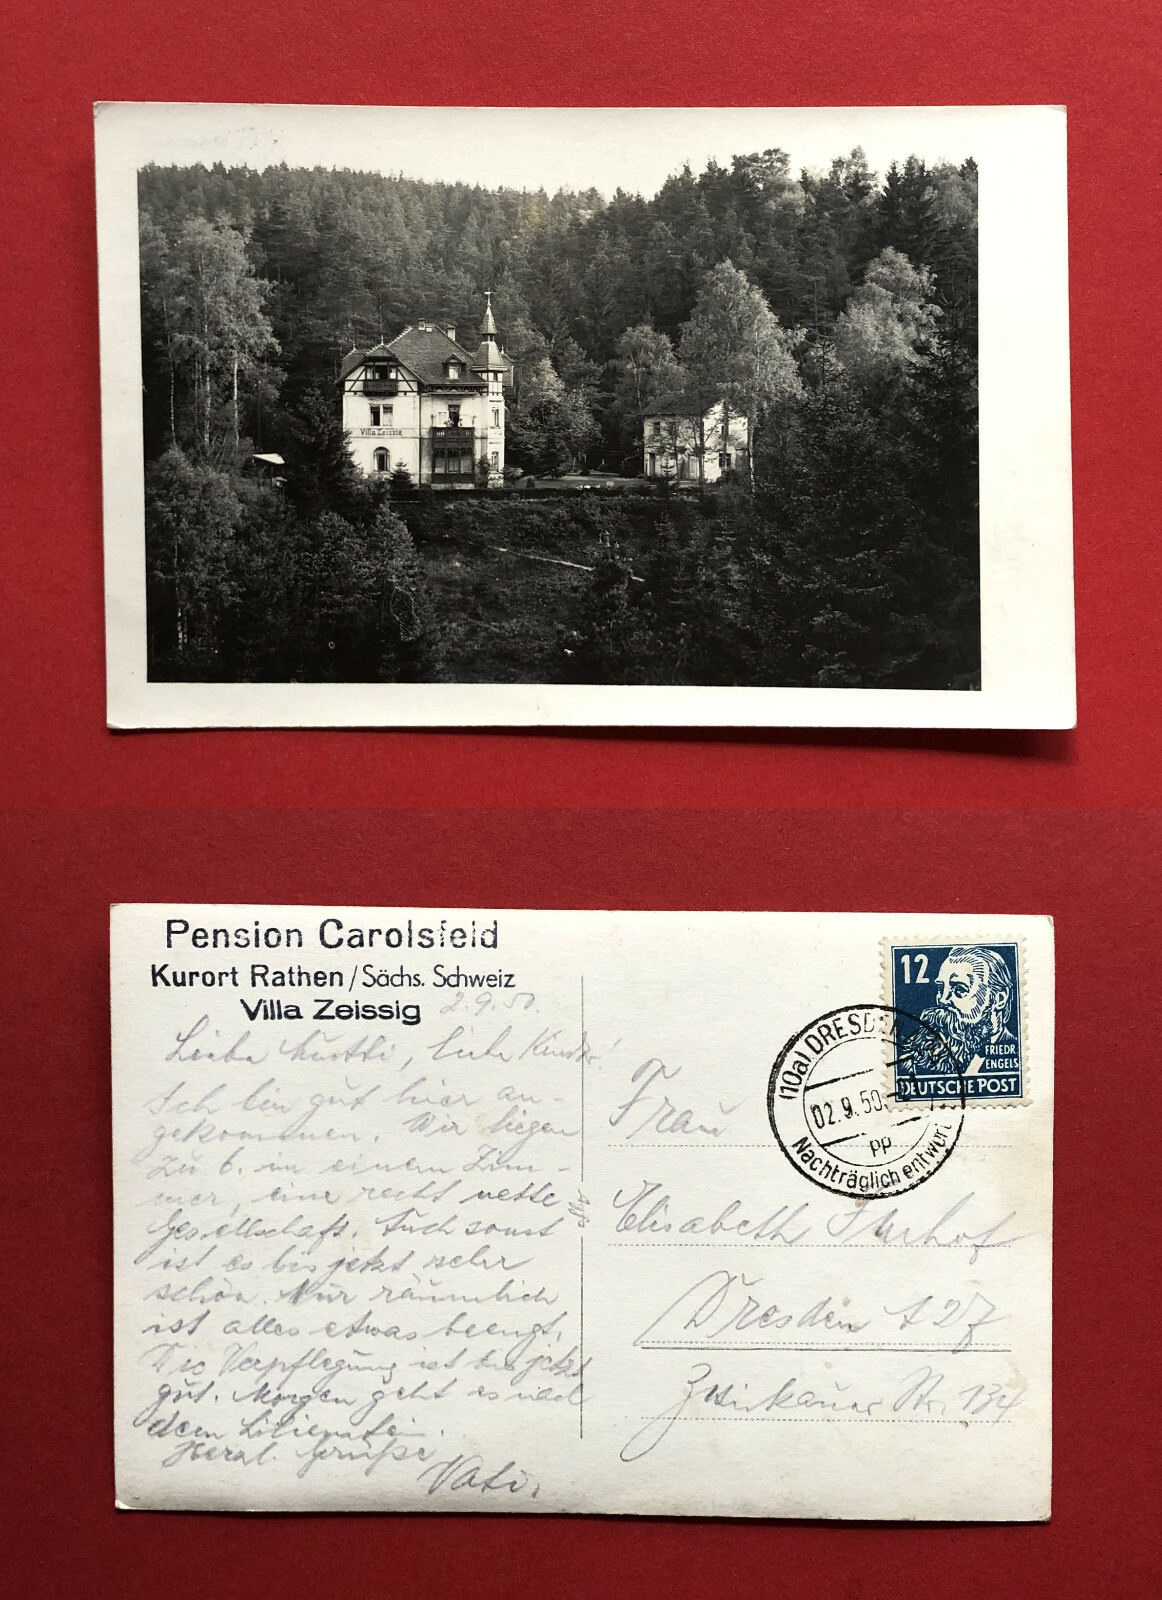 Villa Zeissig
Pension Carolsfeld
Kurort Rathen / Sächs. Schweiz
Villa Zeissig 2.9.50.
Liebe Mutti, liebe Kinder!
Ich bin gut hier an-
gekommen. Wir liegen
zu 6. in einem Zim-
mer, eine recht nette
Gesellschaft. Auch sonst
ist es bis jetzt sehr
schön. Nur räumlich
ist alles etwas beengt.
Die Verpflegung ist bis jetzt
gut. Morgen geht es nach
dem Lilienstein.
Herzl. Grüße
Vati.
Agfa
12
FRIEDR.
ENGELS
DEUTSCHE POST
(10a) DRESDEN
02.9.50
pp
Nachträglich entwert
Frau
Elisabeth
Dresden A 27
Zwickauer Str. 134